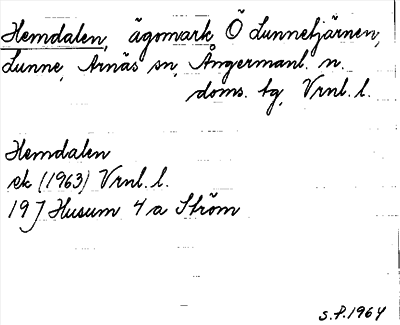 Hemdalen, ägomark Ö Lunnetjärnen,
Lunne, Arnäs sn, Ångermanl. n.
doms. tg, Vrnl. l.
Hemdalen
ek (1963) Vrnl. l.
19 J Husum 4 a Ström
S.P. 1964